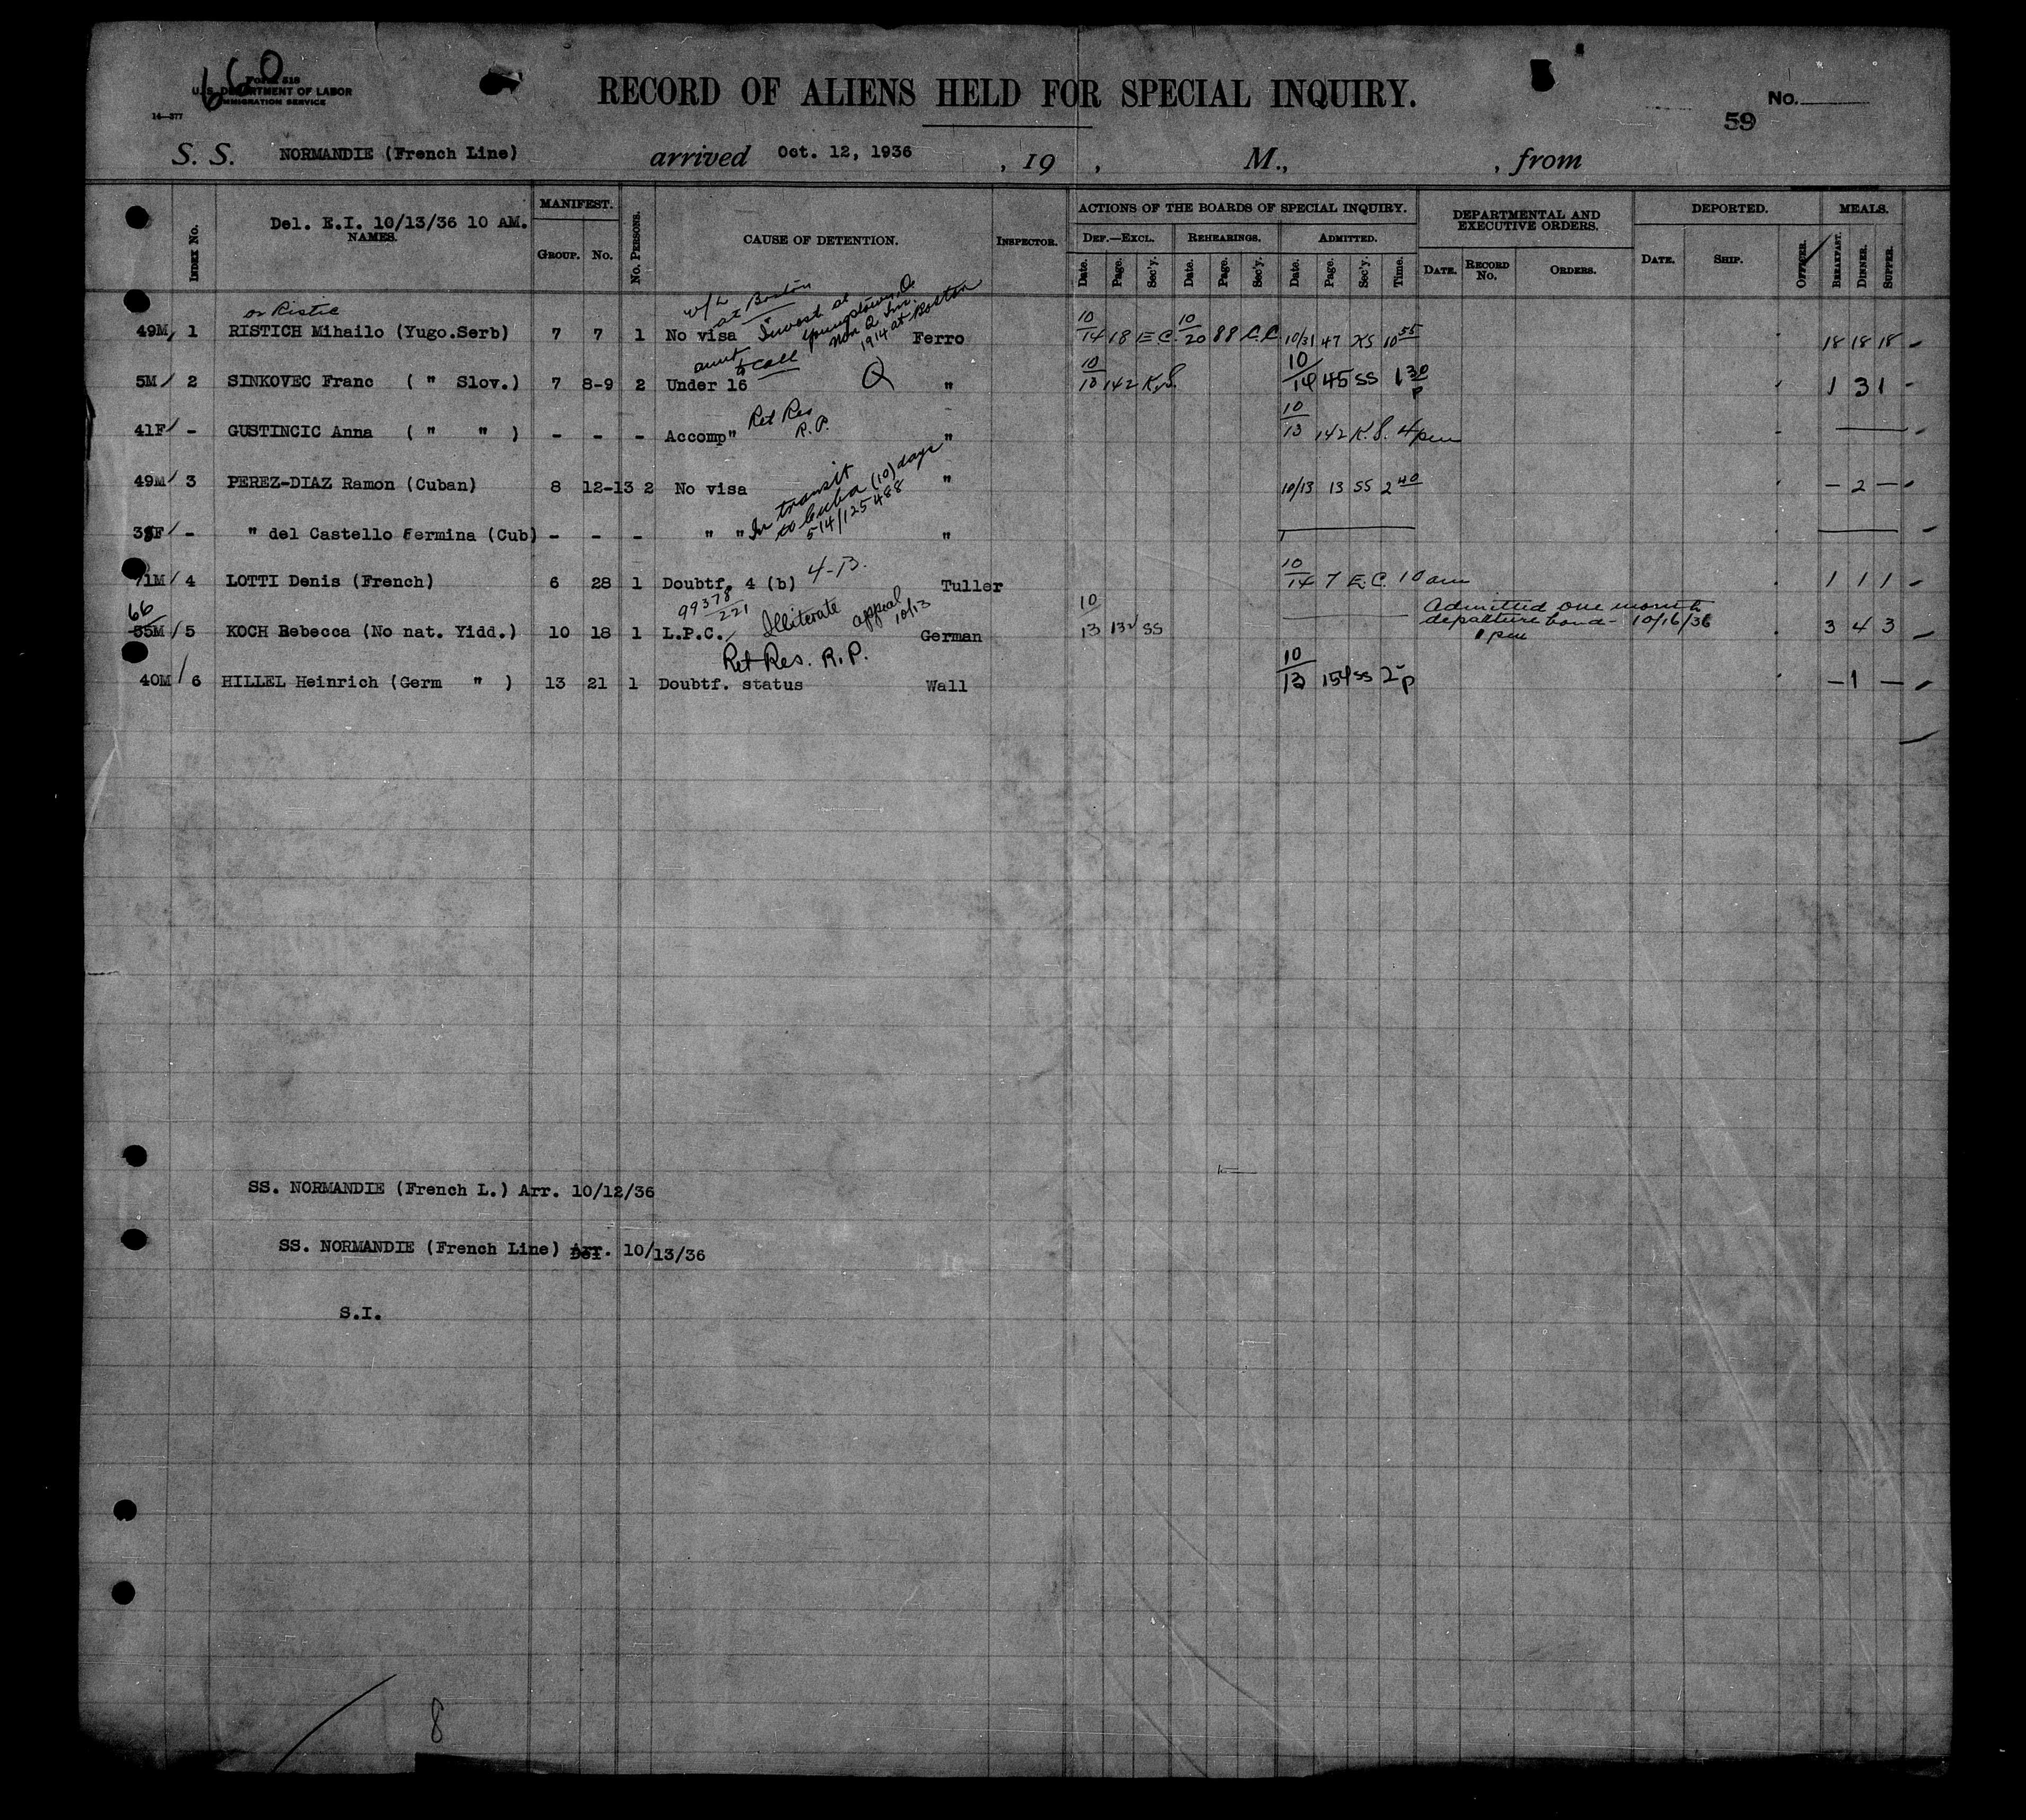 660
Form 518
U. S. DEPARTMENT OF LABOR
IMMIGRATION SERVICE
14—377
RECORD OF ALIENS HELD FOR SPECIAL INQUIRY.
No.
59
S. S. NORMANDIE (French Line) arrived Oct. 12, 1936 , 19 , M., , from
Del. E.I. 10/13/36 10 AM.
MANIFEST. ACTIONS OF THE BOARDS OF SPECIAL INQUIRY. DEPARTMENTAL AND EXECUTIVE ORDERS. DEPORTED. MEALS.
Index No. NAMES. Group. No. No. Persons. CAUSE OF DETENTION. Inspector. Def.—Excl. Rehearings. Admitted.
Date. Page. Sec'y. Date. Page. Sec'y. Date. Page. Sec'y. Time. Date. Record No. Orders. Date. Ship. Officer. Breakfast. Dinner. Supper.
or Ristic
at Boston
Invest at
Youngstown, O.
Non Q Im.
1914 at Boston
49M 1 RISTICH Mihailo (Yugo.Serb) 7 7 1 No visa Ferro 10/14 18 E C. 10/20 88 C.C. 10/31 47 KS 10 55 18 18 18
aunt
to call
5M 2 SINKOVEC Franc ( " Slov.) 7 8-9 2 Under 16 Q " 10/13 142 K.S. 10/14 45 SS 1 30 p 1 3 1
Ret Res
R.P.
41F - GUSTINCIC Anna ( " " ) - - - Accomp" " 10/13 142 K.S. 4 pm
49M 3 PEREZ-DIAZ Ramon (Cuban) 8 12-13 2 No visa " 10/13 13 SS 2 40 — 2 —
In transit
to Cuba (10) days
514/125488
- " del Castello Fermina (Cub) - - - " " "
71M 4 LOTTI Denis (French) 6 28 1 Doubtf. 4 (b) 4-B. Tuller 10/14 7 E.C. 10 am 1 1 1
99378/221
Illiterate
appeal
10/13
Admitted one month
departure bond - 10/16/36
1 pm
66
55M 5 KOCH Rebecca (No nat. Yidd.) 10 18 1 L.P.C. German 10/13 132 SS 3 4 3
Ret Res. R.P.
40M 6 HILLEL Heinrich (Germ " ) 13 21 1 Doubtf. status Wall 10/13 154 SS 2 p — 1 —
SS. NORMANDIE (French L.) Arr. 10/12/36
SS. NORMANDIE (French Line) Del. 10/13/36
S.I.
8